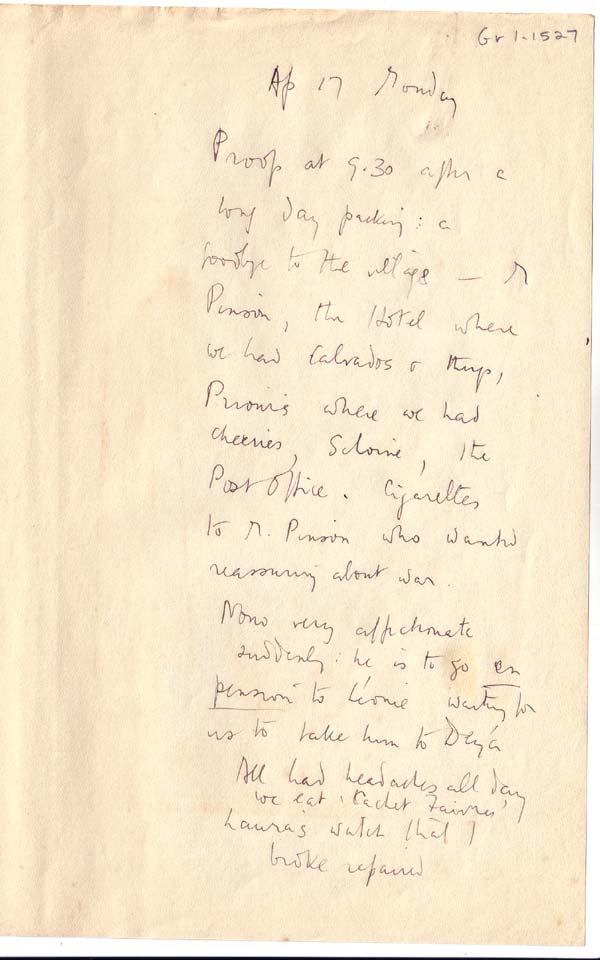 Gr 1-1527
Ap 17 Monday
Proofs at 9.30 after a
long day packing: a
goodbye to the village — M
Pinson, the Hotel where
we had Calvados & things,
where we had
cherries, the
Post Office. Cigarettes
to M. Pinson who wanted
reassuring about war.
Nono very affectionate
suddenly: he is to go en
pension to Léonie waiting for
us to take him to Deyá
All had headaches all day
we eat 'Cachet Faivres'
Laura's watch that I
broke repaired